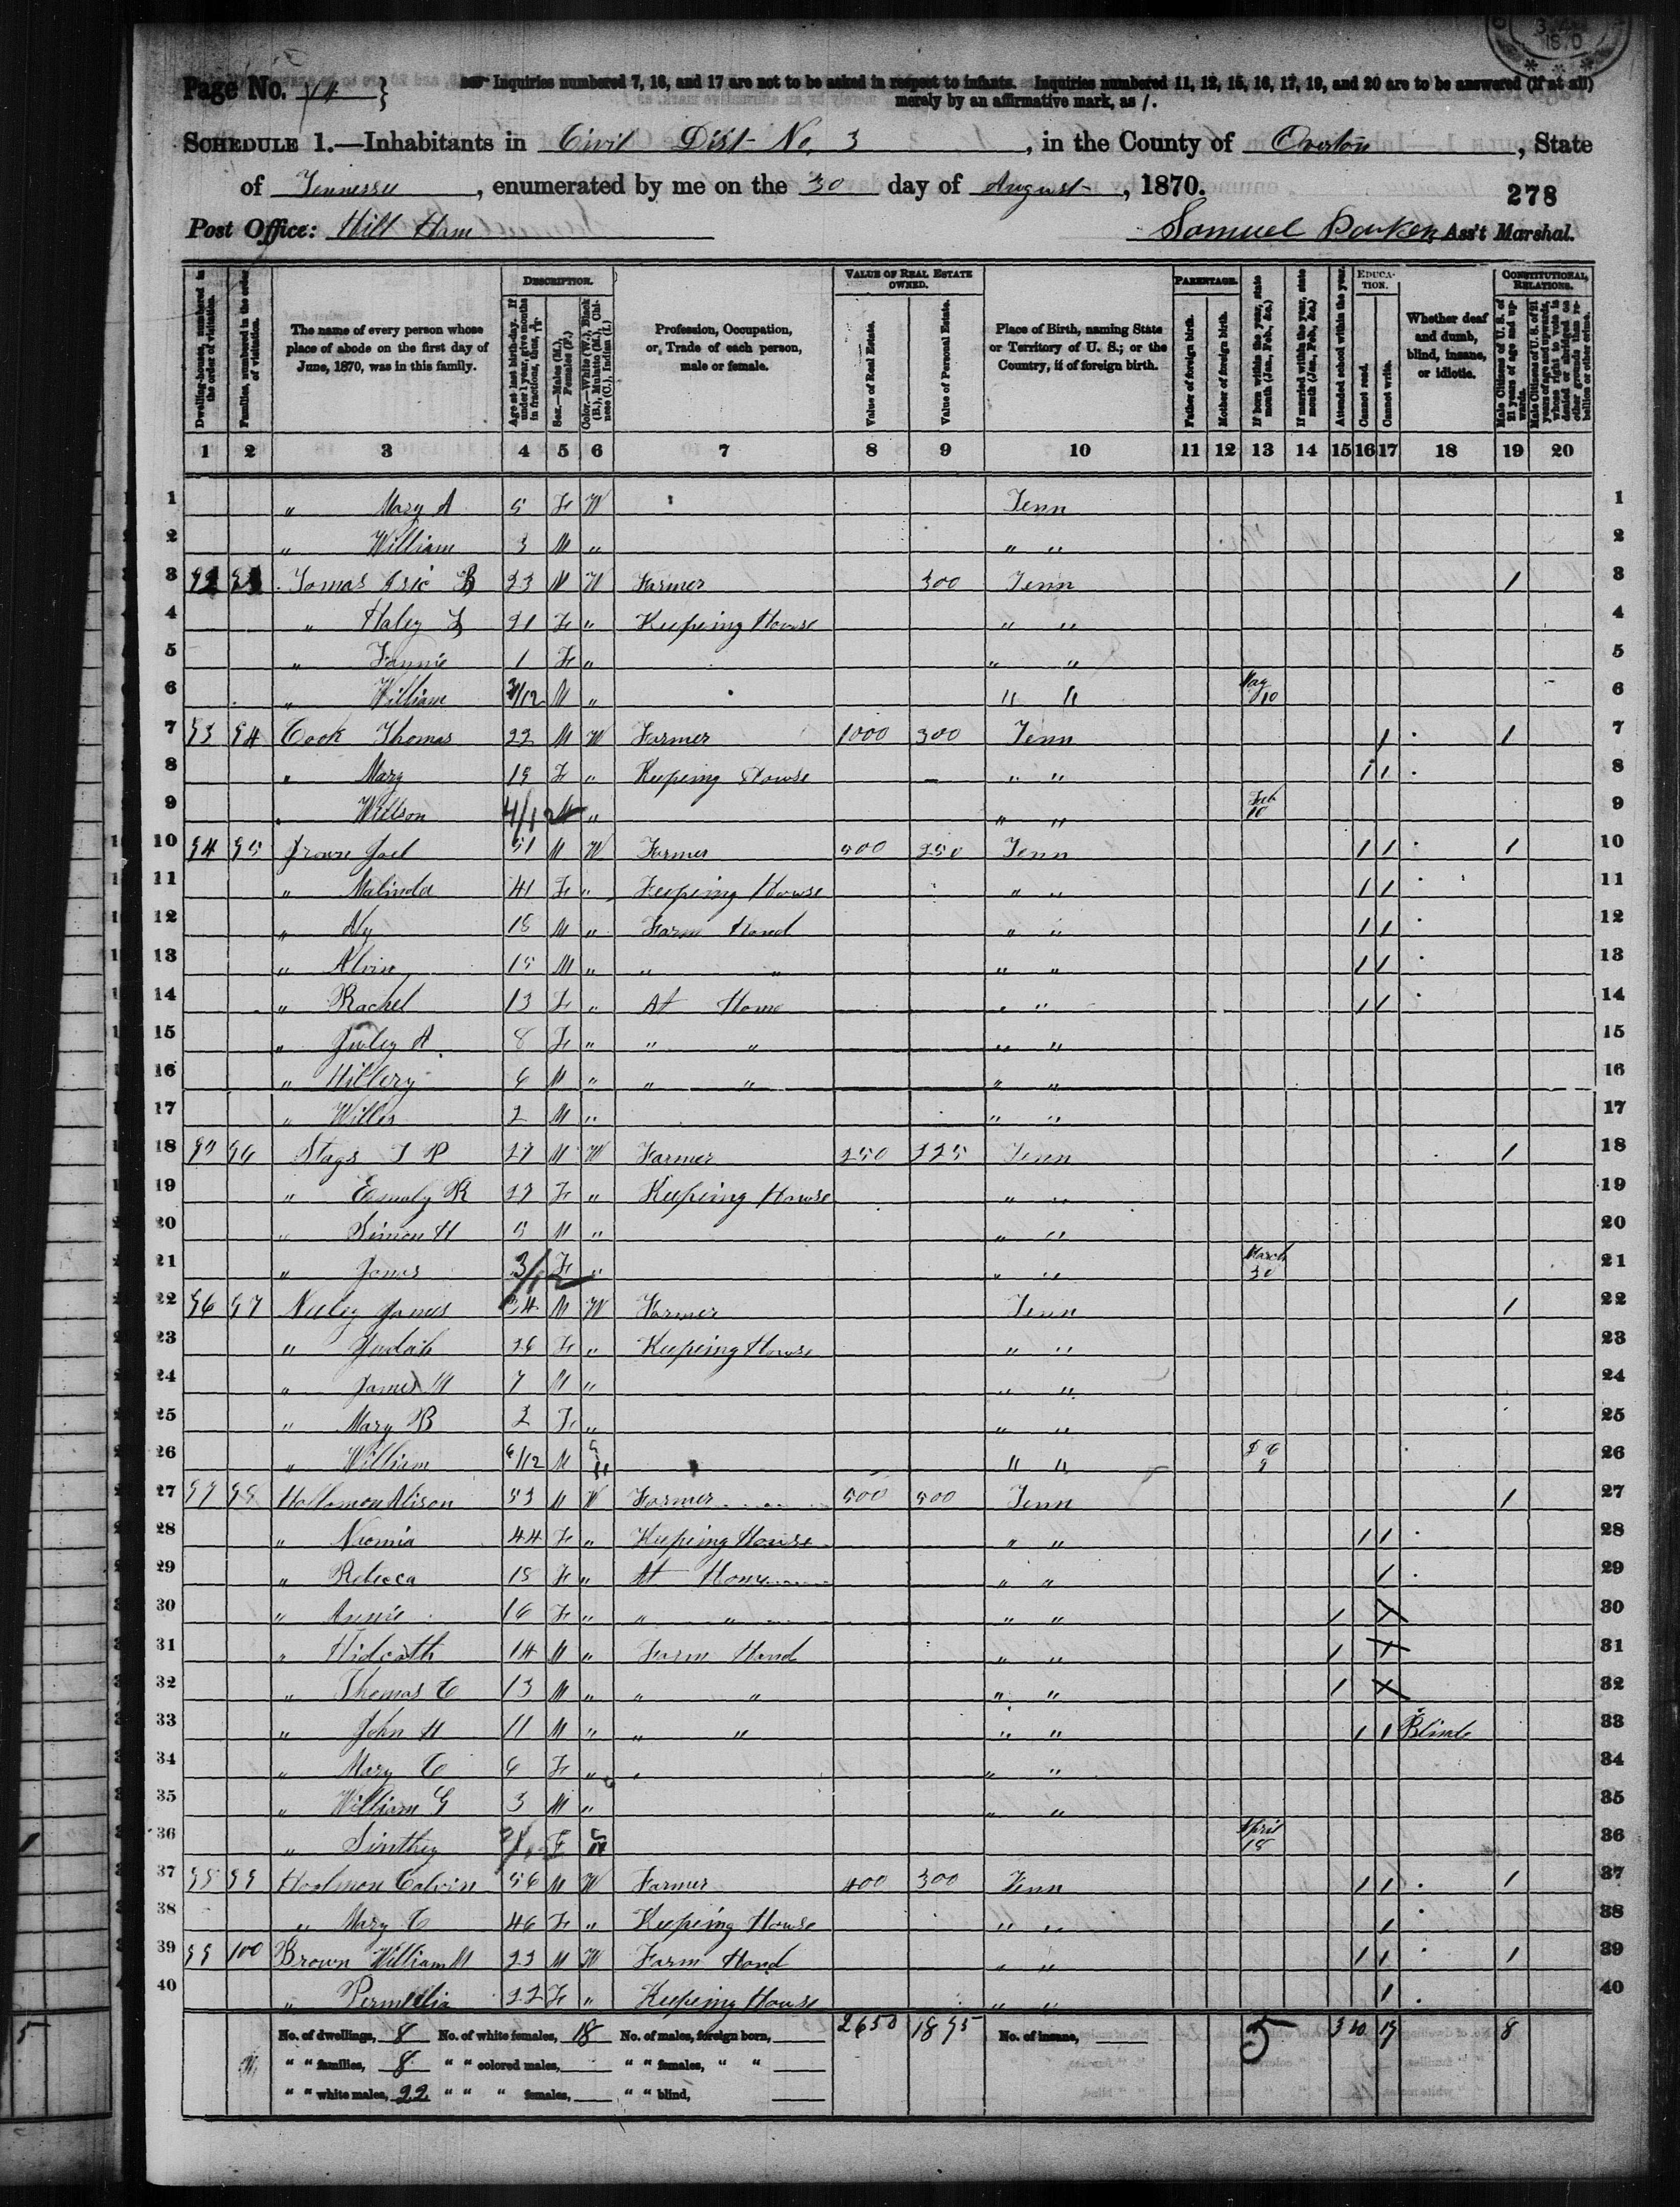 Page No. 14 }
Inquiries numbered 7, 16, and 17 are not to be asked in respect to infants. Inquiries numbered 11, 12, 15, 16, 17, 19, and 20 are to be answered (if at all)
merely by an affirmative mark, as /.
SCHEDULE 1.—Inhabitants in Civil Dist No. 3, in the County of Overton, State
of Tennessee, enumerated by me on the 30 day of August, 1870.
278
Post Office: Hill Ham
Samuel Ass't Marshal.
Dwelling-houses, numbered in the order of visitation.
Families, numbered in the order of visitation.
The name of every person whose place of abode on the first day of June, 1870, was in this family.
DESCRIPTION.
Age at last birth-day. If under 1 year, give months in fractions, thus, 3/12.
Sex.—Males (M.), Females (F.)
Color.—White (W.), Black (B.), Mulatto (M.), Chinese (C.), Indian (I.)
Profession, Occupation, or Trade of each person, male or female.
VALUE OF REAL ESTATE OWNED.
Value of Real Estate.
Value of Personal Estate.
Place of Birth, naming State or Territory of U. S.; or the Country, if of foreign birth.
PARENTAGE.
Father of foreign birth.
Mother of foreign birth.
If born within the year, state month (Jan., Feb., &c.)
If married within the year, state month (Jan., Feb., &c.)
Attended school within the year.
EDUCATION.
Cannot read.
Cannot write.
Whether deaf and dumb, blind, insane, or idiotic.
CONSTITUTIONAL RELATIONS.
Male Citizens of U. S. of 21 years of age and upwards.
Male Citizens of U. S. of 21 years of age and upwards, whose right to vote is denied or abridged on other grounds than rebellion or other crime.
1 2 3 4 5 6 7 8 9 10 11 12 13 14 15 16 17 18 19 20
1 " Mary A 5 F W Tenn 1
2 " William 3 M " " " 2
3 92 93 Tomas B 23 M W Farmer 300 Tenn 1 3
4 " Haley 21 F " Keeping House " " 4
5 " Fannie 1 F " " " 5
6 " William /12 M " " " May 10 6
7 93 94 Cook Thomas 22 M W Farmer 1000 300 Tenn 1 1 7
8 " Mary 19 F " Keeping House " " 1 1 8
9 " Willson 4/12 M " " " Feb 10 9
10 94 95 Joel 51 M W Farmer 500 250 Tenn 1 1 1 10
11 " Malinda 41 F " Keeping House " " 1 1 11
12 " Aly 18 M " Farm Hand " " 1 1 12
13 " Alvin 15 M " " " " " 1 1 13
14 " Rachel 13 F " At Home " " 1 1 14
15 " Juley A 8 F " " " " " 15
16 " Hillery 6 M " " " " " 16
17 " Willis 2 M " " " 17
18 95 96 Stags J P 27 M W Farmer 250 225 Tenn 1 18
19 " Emaly R 27 F " Keeping House " " 19
20 " Simon H 5 M " " " 20
21 " 3/12 F " " " March 30 21
22 96 97 Neeley James 24 M W Farmer Tenn 1 22
23 " Judah 26 F " Keeping House " " 23
24 " James M 7 M " " " 24
25 " Mary B 2 F " " " 25
26 " William 6/12 M " " " 26
27 97 98 Hollomon Alison 53 M W Farmer 500 500 Tenn 1 27
28 " Neomia 44 F " Keeping House " " 1 1 28
29 " Rebecca 18 F " At Home " " 1 29
30 " Annie 16 F " " " " " 1 30
31 " 14 M " Farm Hand " " 1 31
32 " Thomas C 13 M " " " " " 1 32
33 " John H 11 M " " " " " 1 1 Blind 33
34 " Mary C 6 F " " " 34
35 " William G 3 M " " " 35
36 " Sinthey F " " " April 18 36
37 98 99 Holmon Calvin 56 M W Farmer 400 300 Tenn 1 1 1 37
38 " Mary C 46 F " Keeping House " " 1 38
39 99 100 Brown William M 23 M W Farm Hand " " 1 1 1 39
40 " Permelia 22 F " Keeping House " " 1 40
No. of dwellings, 8 No. of white females, 18 No. of males, foreign born, 2650 1895 No. of insane, 5 3 10 17 8
" " families, 8 " " colored males, " " females, " "
" " white males, 22 " " " females, " " blind,